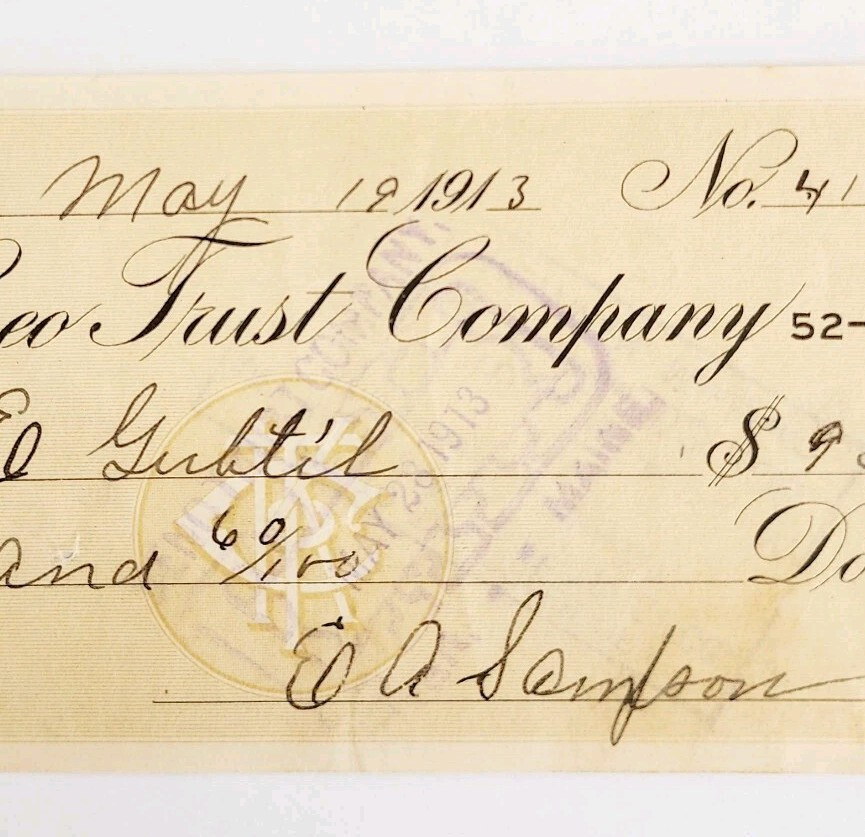 May 19 1913 No. 41
eo Trust Company 52-
Ed Gubtil $ 9
and 60/100 Do
E A Sampson
COMPANY,
MAY 28 1913
MAINE.